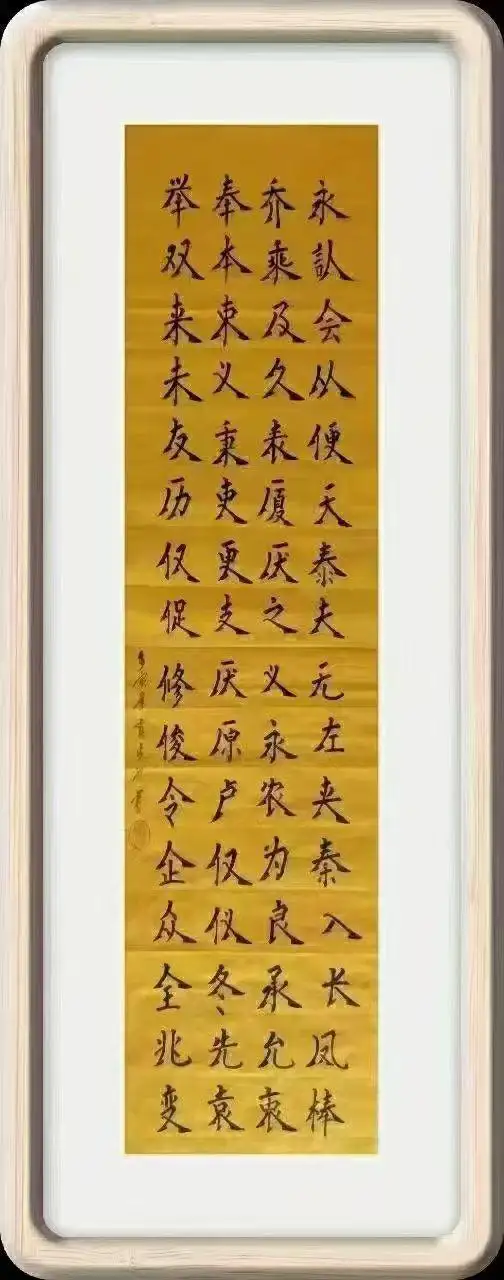 永訙会从便天泰夫无左夹秦入长凤棒
乔乘及久表厦厌之义永农为良承允衷
奉本束义秉吏更支厌原卢仅仪冬先袁
举双来未友历仅促修俊令企众全兆变